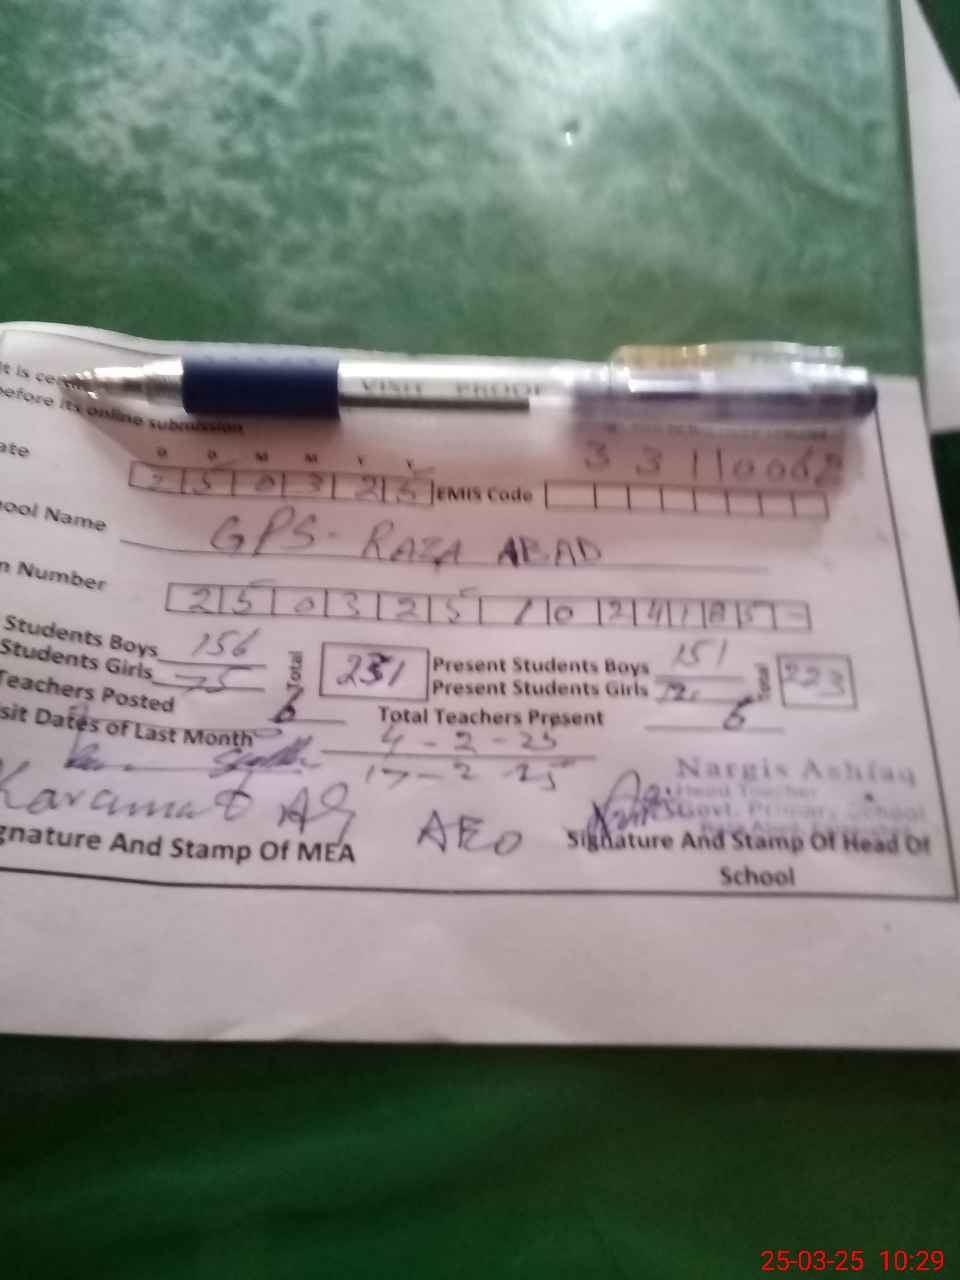 It is
before its online submission
ate
D D M M Y Y
2 5 0 3 2 5 EMIS Code 3 3 1 1 0 0 6
hool Name GPS- RAZA ABAD
n Number 2 5 0 3 2 5 1 0 2 4 1 8 5 -
Students Boys 156 Total 231 Present Students Boys 151 Total 223
Students Girls 75 Present Students Girls 72
Teachers Posted Total Teachers Present 6
sit Dates of Last Month 4 - 2 - 25
17 - 2 25
Karamat Ali AEO
Nargis Ashfaq
Head Teacher
Govt. Primary School
gnature And Stamp Of MEA
Signature And Stamp Of Head Of
School
VISIT PROOF
25-03-25 10:29